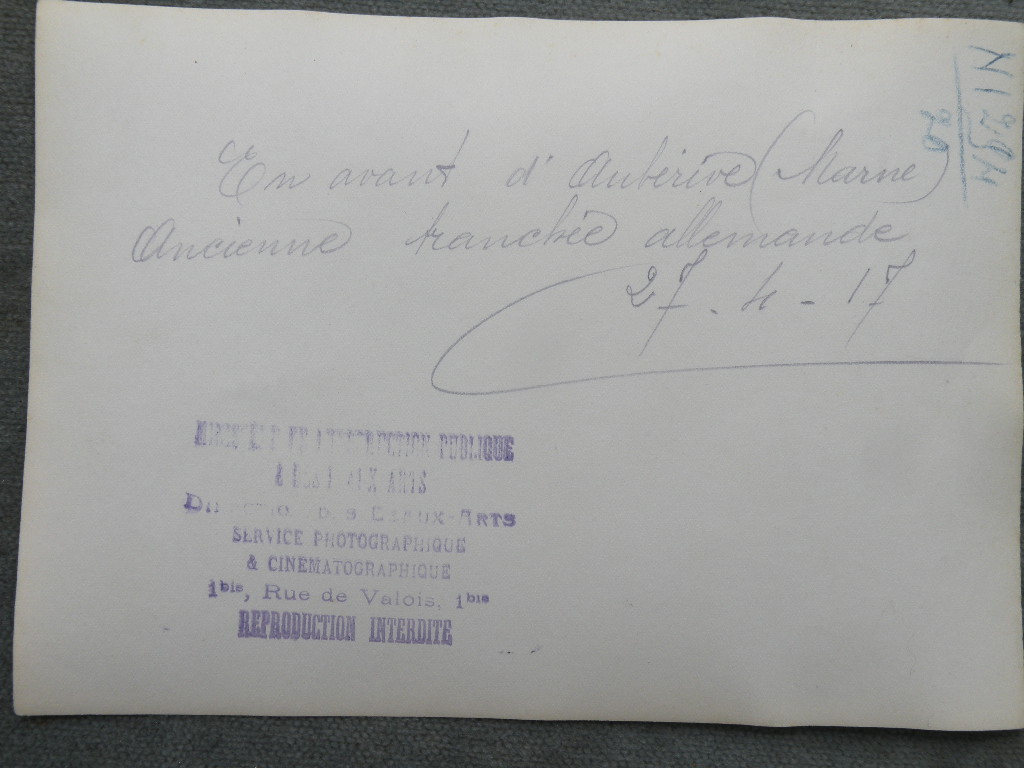 En avant d'Aubérive (Marne)
Ancienne tranchée allemande
27.4-17
N1294
20
MINISTÈRE DE L'INSTRUCTION PUBLIQUE
& DES BEAUX ARTS
DIRECTION DES BEAUX-ARTS
SERVICE PHOTOGRAPHIQUE
& CINEMATOGRAPHIQUE
1bis, Rue de Valois, 1bis
REPRODUCTION INTERDITE